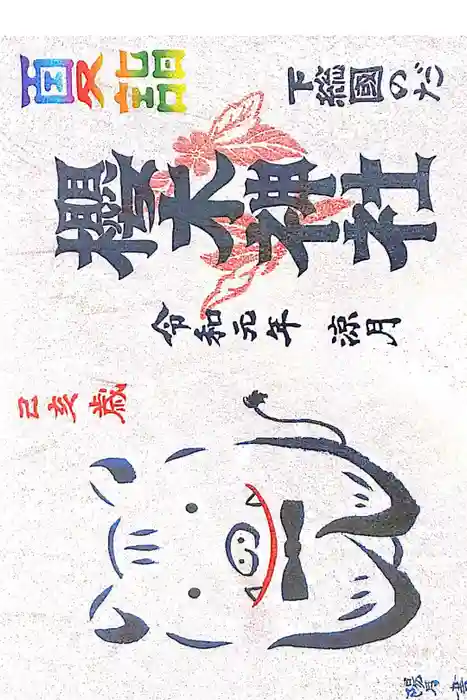 下総國のだ
櫻木神社
令和元年 涼月
己亥歳